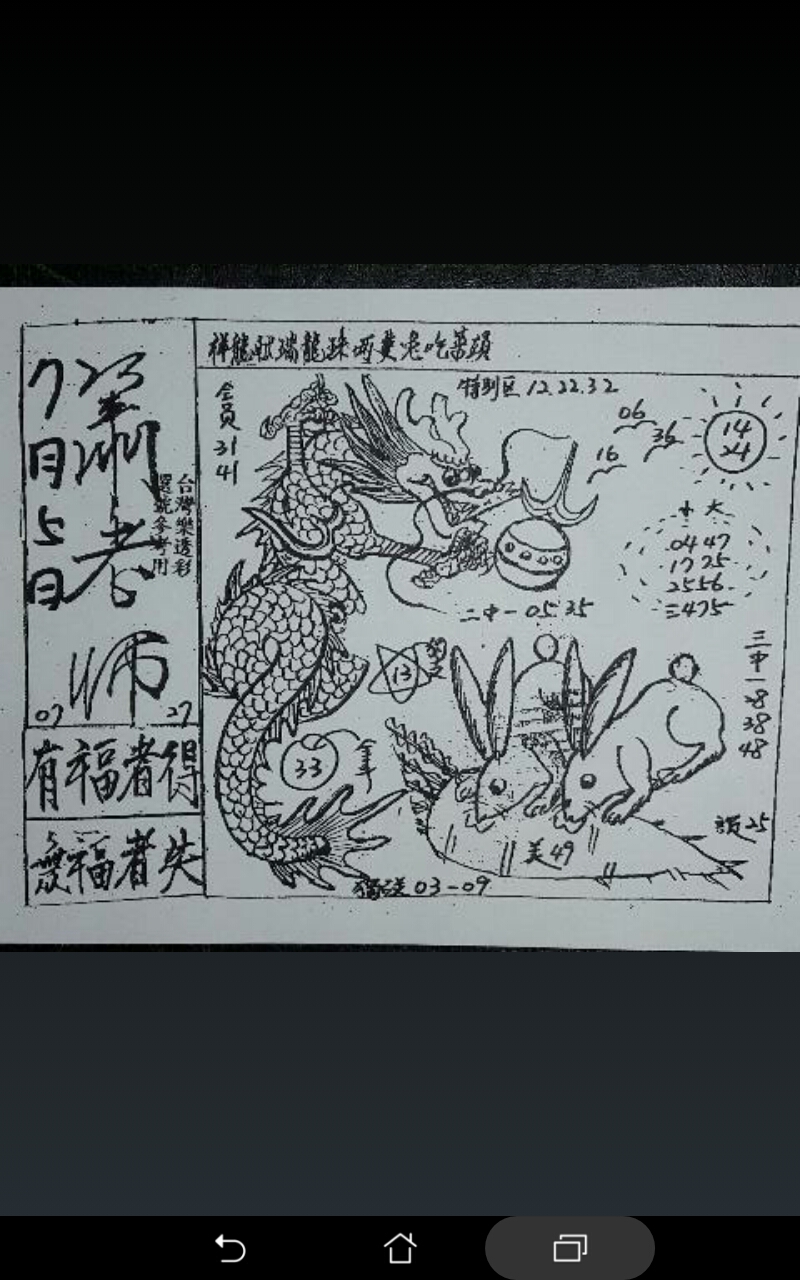 有福者得
無福者失
07
27
老
师
台灣樂透彩
選號參考用
祥龍献瑞龍珠两隻兔吃菜頭
会员
31
41
特別区 12.22.32
06
36
16
14
24
十大
04 47
17 25
2556
三475
二中一 05 35
13
33
三中一
28
38
48
美49
25
独送 03-09